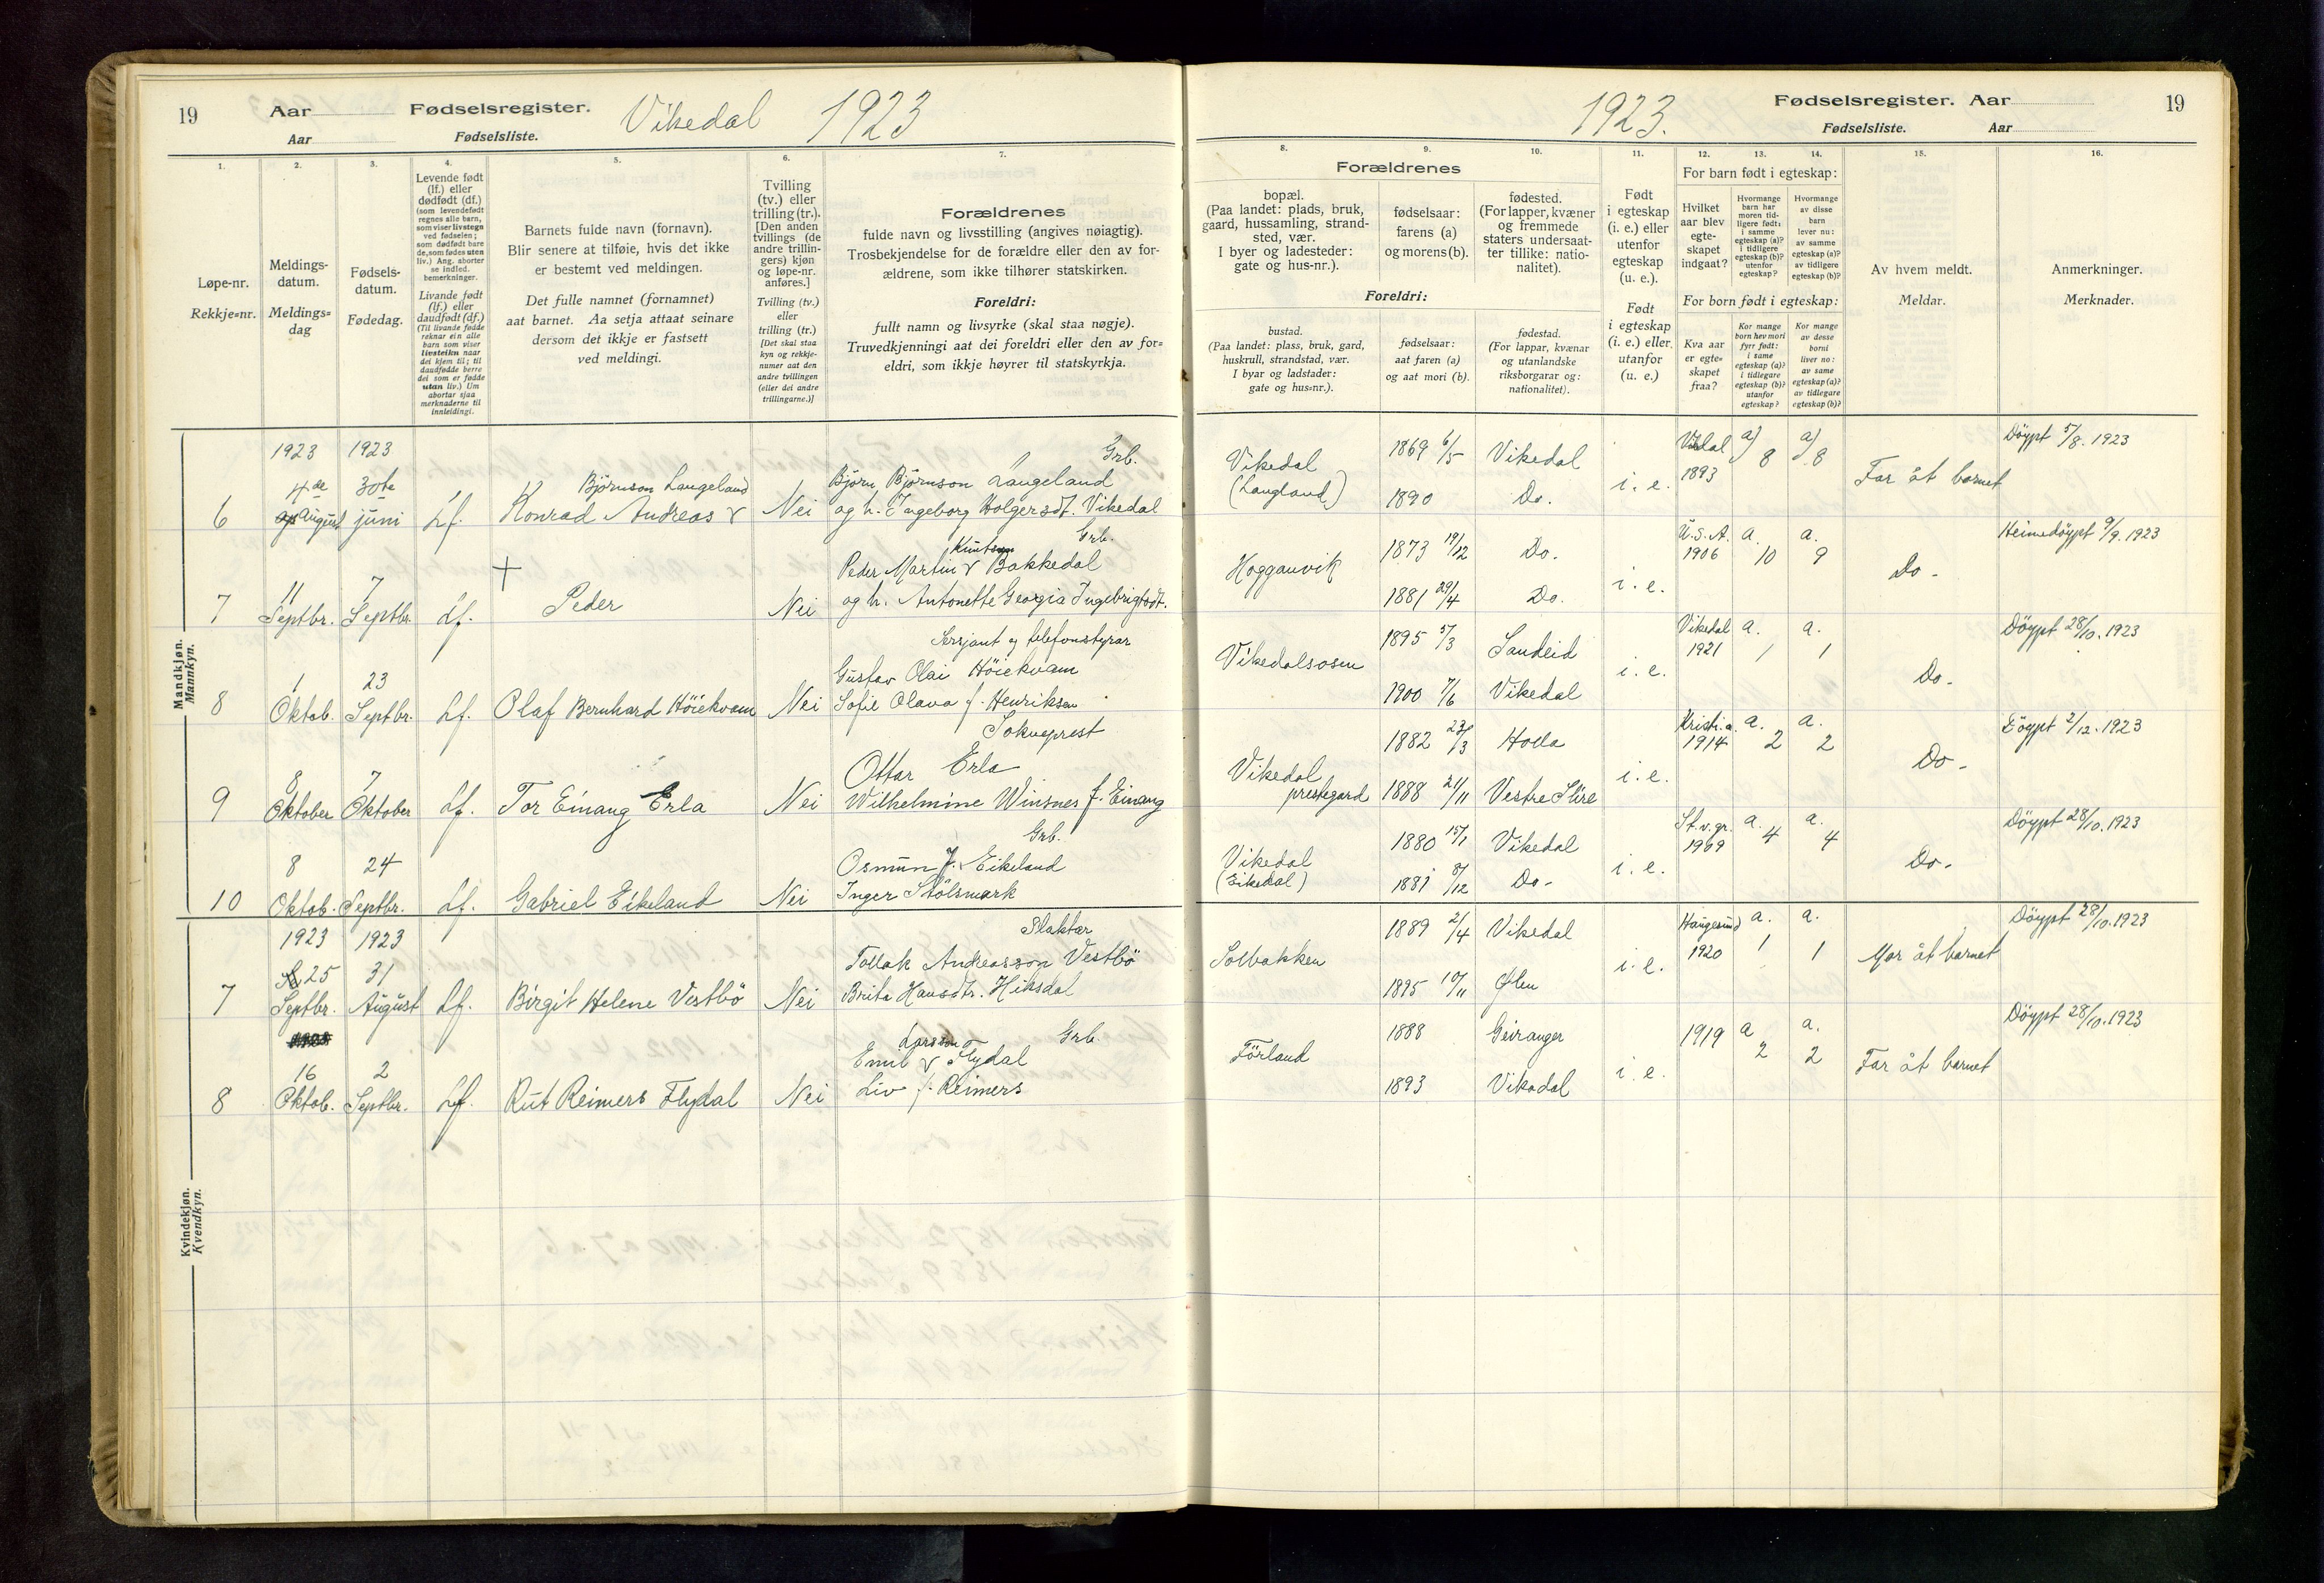 19 Aar Fødselsregister. Vikedal 1923
Aar Fødselsliste.
1. 2. 3. 4. 5. 6. 7.
Løpe-nr.
Rekkje=nr.
Meldings-
datum.
Meldings=
dag
Fødsels-
datum.
Fødedag.
Levende født
(lf.) eller
dødfødt (df.)
(som levendefødt
regnes alle barn,
som viser livstegn
ved fødselen;
som dødfødt bare
de, som fødes uten
liv.) Ang. aborter
se indled.
bemerkninger.
Livande født
(lf.) eller
daudfødt (df.)
(Til livande fødde
reknar ein alle
barn som viser
livsteikn naar
dei kjem til; til
daudfødde berre
dei som er fødde
utan liv.) Um
abortar sjaa
merknaderne til
innleidingi.
Barnets fulde navn (fornavn).
Blir senere at tilføie, hvis det ikke
er bestemt ved meldingen.
Det fulle namnet (fornamnet)
aat barnet. Aa setja attaat seinare
dersom det ikkje er fastsett
ved meldingi.
Tvilling
(tv.) eller
trilling (tr.).
[Den anden
tvillings (de
andre trillin-
gers) kjøn
og løpe-nr.
anføres.]
Tvilling (tv.)
eller
trilling (tr.)
[Det skal staa
kyn og rekkje-
numer aat den
andre tvillingen
(eller dei andre
trillingarne.)]
Forældrenes
fulde navn og livsstilling (angives nøiagtig).
Trosbekjendelse for de forældre eller den av for-
ældrene, som ikke tilhører statskirken.
Foreldri:
fullt namn og livsyrke (skal staa nøgje).
Truvedkjenningi aat dei foreldri eller den av for=
eldri, som ikkje høyrer til statskyrkja.
Mandkjøn.
Mannkyn.
1923 1923 Grb.
4de 30te Björnson Langeland Björn Björnson Langeland
6 August juni Lf. Konrad Andreas v Nei og h. Ingeborg Holgersdt. Vikedal
Grb.
Knutson
11 7 + Peder Martin v Bakkedal
7 Septbr. Septbr. Lf. Peder Nei og h. Antonette Georgia Ingebrigtsdt.
Sersjant og telefonstyrar
1 23 Gustav Olai Höiekvam
8 Oktob. Septbr. Lf. Olaf Bernhard Höiekvam Nei Sofie Olava f. Henriksen
Sokneprest
8 7 Ottar Erla
9 Oktober Oktober Lf. Tor Einang Erla Nei Wilhelmine Winsnes f. Einang
Grb.
8 24 Osmun J. Eikeland
10 Oktob. Septbr. Lf. Gabriel Eikeland Nei Inger Stölsmark
Kvindekjøn.
Kvendkyn.
1923 1923 Slaktar
25 31 Tollak Andreasson Vestbö
7 Septbr. August Lf. Birgit Helene Vestbö Nei Brita Hansdtr. Hiksdal
Larsson Grb
16 2 Emil v Flydal
8 Oktob. Septbr. Lf. Rut Reimers Flydal Nei Liv f. Reimers
1923. Fødselsregister. Aar 19
Fødselsliste. Aar
8. 9. 10. 11. 12. 13. 14. 15. 16.
Forældrenes
bopæl.
(Paa landet: plads, bruk,
gaard, hussamling, strand-
sted, vær.
I byer og ladesteder:
gate og hus-nr.).
fødselsaar:
farens (a)
og morens (b).
fødested.
(For lapper, kvæner
og fremmede
staters undersaat-
ter tillike: natio-
nalitet).
Foreldri:
bustad.
(Paa landet: plass, bruk, gard,
huskrull, strandstad, vær.
I byar og ladstader:
gate og hus=nr.).
fødselsaar:
aat faren (a)
og aat mori (b).
fødestad.
(For lappar, kvænar
og utanlandske
riksborgarar og:
nationalitet).
Født
i egteskap
(i. e.) eller
utenfor
egteskap
(u. e.).
Født
i egteskap
(i. e.) eller
utanfor
(u. e.)
For barn født i egteskap:
Hvilket
aar blev
egte-
skapet
indgaat?
Hvormange
barn har
moren tid-
ligere født:
i samme
egteskap (a)?
i tidligere
egteskap (b)?
utenfor
egteskap?
Hvormange
av disse
barn
lever nu:
av samme
egteskap (a)?
av tidligere
egteskap (b)?
For born født i egteskap:
Kva aar
er egte=
skapet
fraa?
Kor mange
born hev mori
fyrr født:
i same
egteskap (a)?
i tidlegare
egteskap (b)?
utanfor
egteskap?
Kor mange
av desse
borni
liver no:
av same
egteskap (a)?
av tidlegare
egteskap (b)?
Av hvem meldt.
Meldar.
Anmerkninger.
Merknader.
Vikedal 1869 6/5 Vikedal a) 8 a) 8 Döypt 5/8. 1923
(Langland) 1890 Do. i. e. 1893 Far åt barnet
Hogganvik 1873 19/12 Do. U.S.A. a. a. Heimedöypt 9/9. 1923
1881 29/4 Do. i. e. 1906 10 9 Do -
Vikedalsosen 1895 5/3 Sandeid Vikedal a. a. Döypt 28/10. 1923
1900 7/6 Vikedal i. e. 1921 1 1 Do.
Vikedal 1882 23/3 Holla Kristi.a. a. a. Döypt 2/12. 1923
prestegard 1888 21/11 Vestre Slire i. e. 1914 2 2 Do -
Vikedal 1880 15/1 Vikedal St.v.gr. a. a. Döypt 28/10. 1923
1881 8/12 Do - i. e. 1909 4 4 Do -
Solbakken 1889 2/4 Vikedal Haugesund a. a. Döypt 28/10. 1923
1895 10/11 Ølen i. e. 1920 1 1 Mor åt barnet
Förland 1888 Geiranger 1919 a a. Döypt 28/10. 1923
1893 Vikedal i. e. 2 2 Far åt barnet